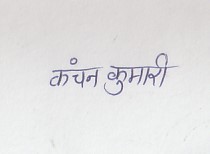 कंचन कुमारी